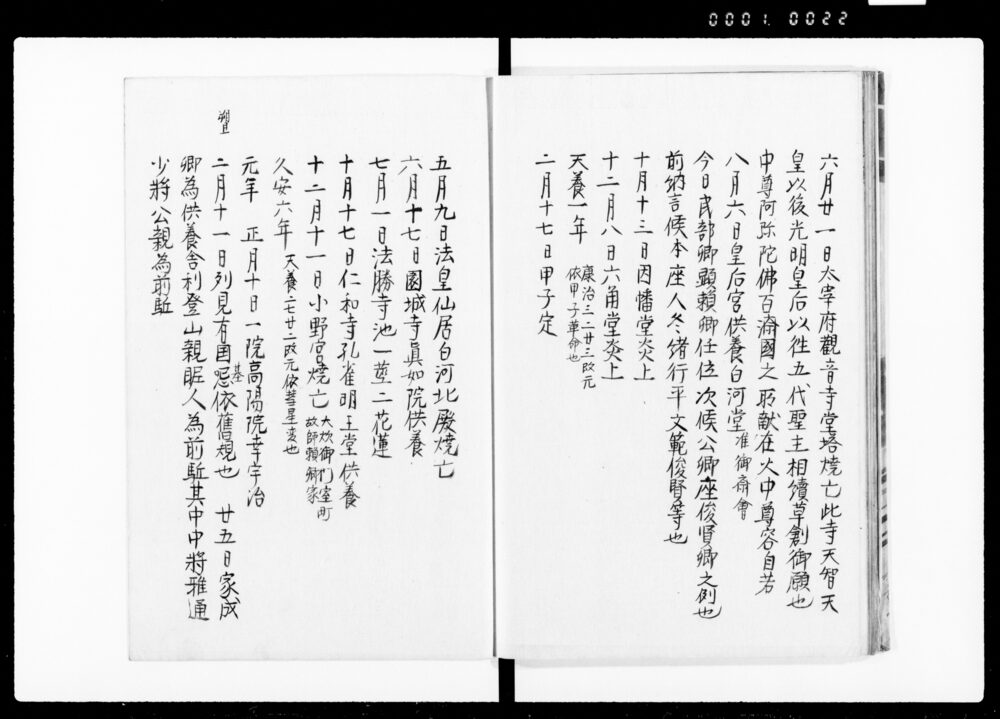 0001. 0022
六月廿一日太宰府觀音寺堂塔燒亡此寺天智天
皇以後光明皇后以徃五代聖主相續草創御願也
中尊阿弥陀佛百濟國之所献在火中尊容自若
八月六日皇后宮供養白河堂准御斎會
今日民部卿顕頼卿任位次候公卿座俊賢卿之例也
前納言候本座人冬緒行平文範俊賢等也
十月十三日因幡堂炎上
十二月八日六角堂炎上
天養一年 康治三二廿三改元
依甲子革命也
二月十七日甲子定
五月九日法皇仙居白河北殿燒亡
六月十七日園城寺真如院供養
七月一日法勝寺池一莖二花蓮
十月十七日仁和寺孔雀明王堂供養
十二月十一日小野宮燒亡 大炊御門室町
故師頼卿家
久安六年 天養二七廿二改元依彗星変也
元年 正月十日一院高陽院幸宇治
二月十一日列見有国忌依舊規也 廿五日家成
基
卿為供養舎利登山親昵人為前駈其中中將雅通
少將公親為前駈